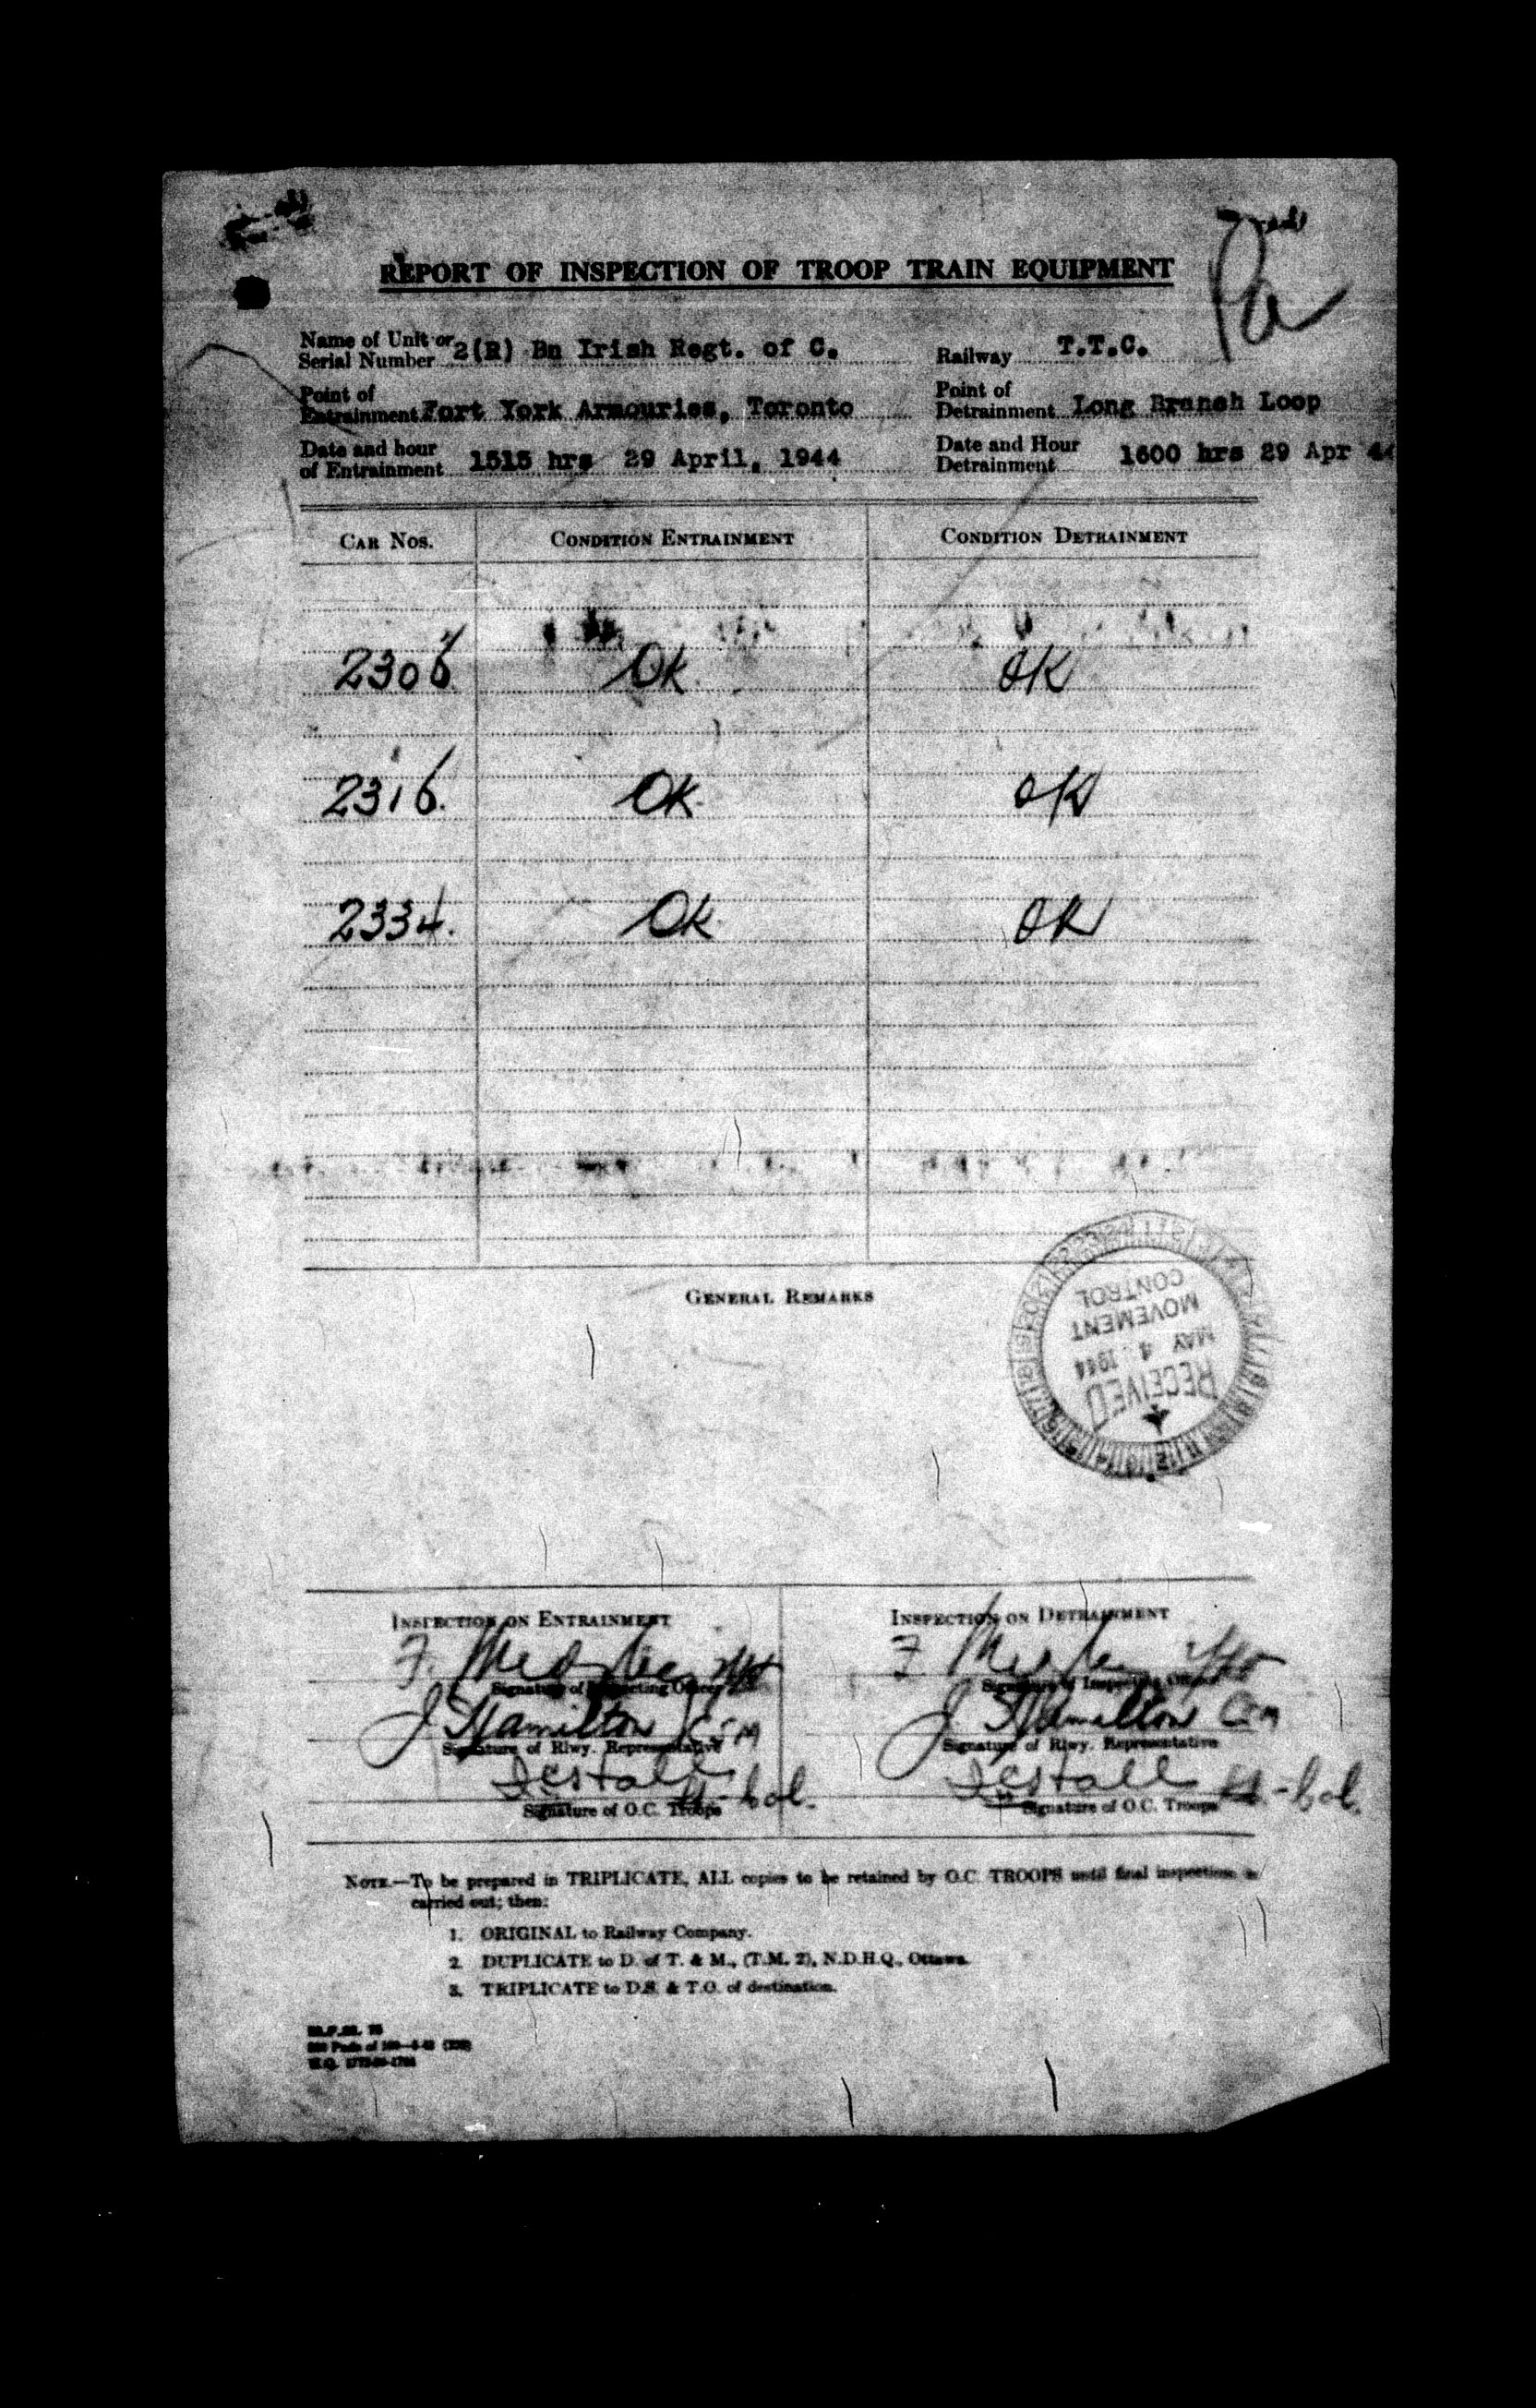 Pa
REPORT OF INSPECTION OF TROOP TRAIN EQUIPMENT
Name of Unit or Serial Number 2(R) Bn Irish Regt. of C. Railway T.T.C.
Point of Entrainment Fort York Armouries, Toronto Point of Detrainment Long Branch Loop
Date and hour of Entrainment 1515 hrs 29 April, 1944 Date and Hour Detrainment 1600 hrs 29 Apr 44
CAR NOS. CONDITION ENTRAINMENT CONDITION DETRAINMENT
2306 OK OK
2316. OK OK
2334. OK OK
GENERAL REMARKS
RECEIVED
MAY 4 1944
MOVEMENT
CONTROL
INSPECTION ON ENTRAINMENT INSPECTION ON DETRAINMENT
F. F.
Signature of Inspecting Officer Signature of Inspecting Officer
J. Hamilton J. Hamilton
Signature of Rlwy. Representative Signature of Rlwy. Representative
Lt-Col. Lt-Col.
Signature of O.C. Troops Signature of O.C. Troops
NOTE.—To be prepared in TRIPLICATE, ALL copies to be retained by O.C. TROOPS until final inspection is
carried out; then:
1. ORIGINAL to Railway Company.
2. DUPLICATE to D. of T. & M., (T.M. 2), N.D.H.Q., Ottawa.
3. TRIPLICATE to D.S. & T.O. of destination.